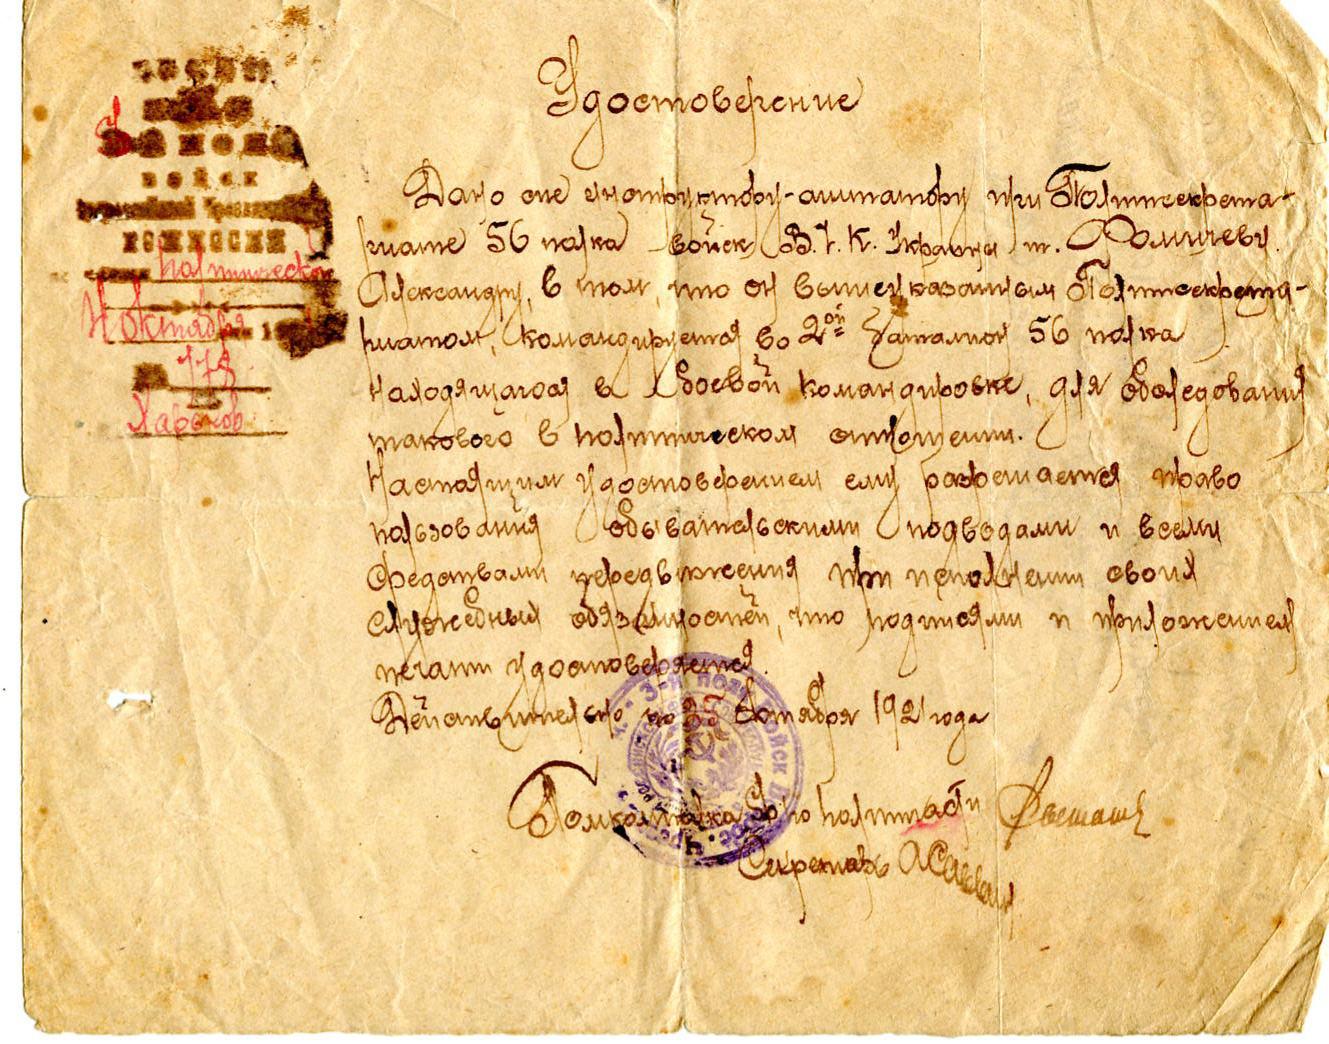 войск
комиссии
политическая
4 октября
178
Харьков
Удостоверение
Дано сие инструктору-агитатору при Политсекрета-
риате 56 полка войск В.Ч.К. Украины т. Фомичеву
Александру, в том, что он вышеуказанным Политсекрета-
риатом, командируется во 2ой баталион 56 полка
находящагося в боевой командировке, для обследования
такового в политическом отношении.
Настоящим удостоверением ему разрешается право
пользования обывательскими подводами и всеми
средствами передвижения при исполнении своих
служебных обязанностей, что подписями и приложением
печати удостоверяется.
Действительно по 25 Октября 1921 года
Помкомполка 56 по политчасти
Секретарь
3-й полк войск